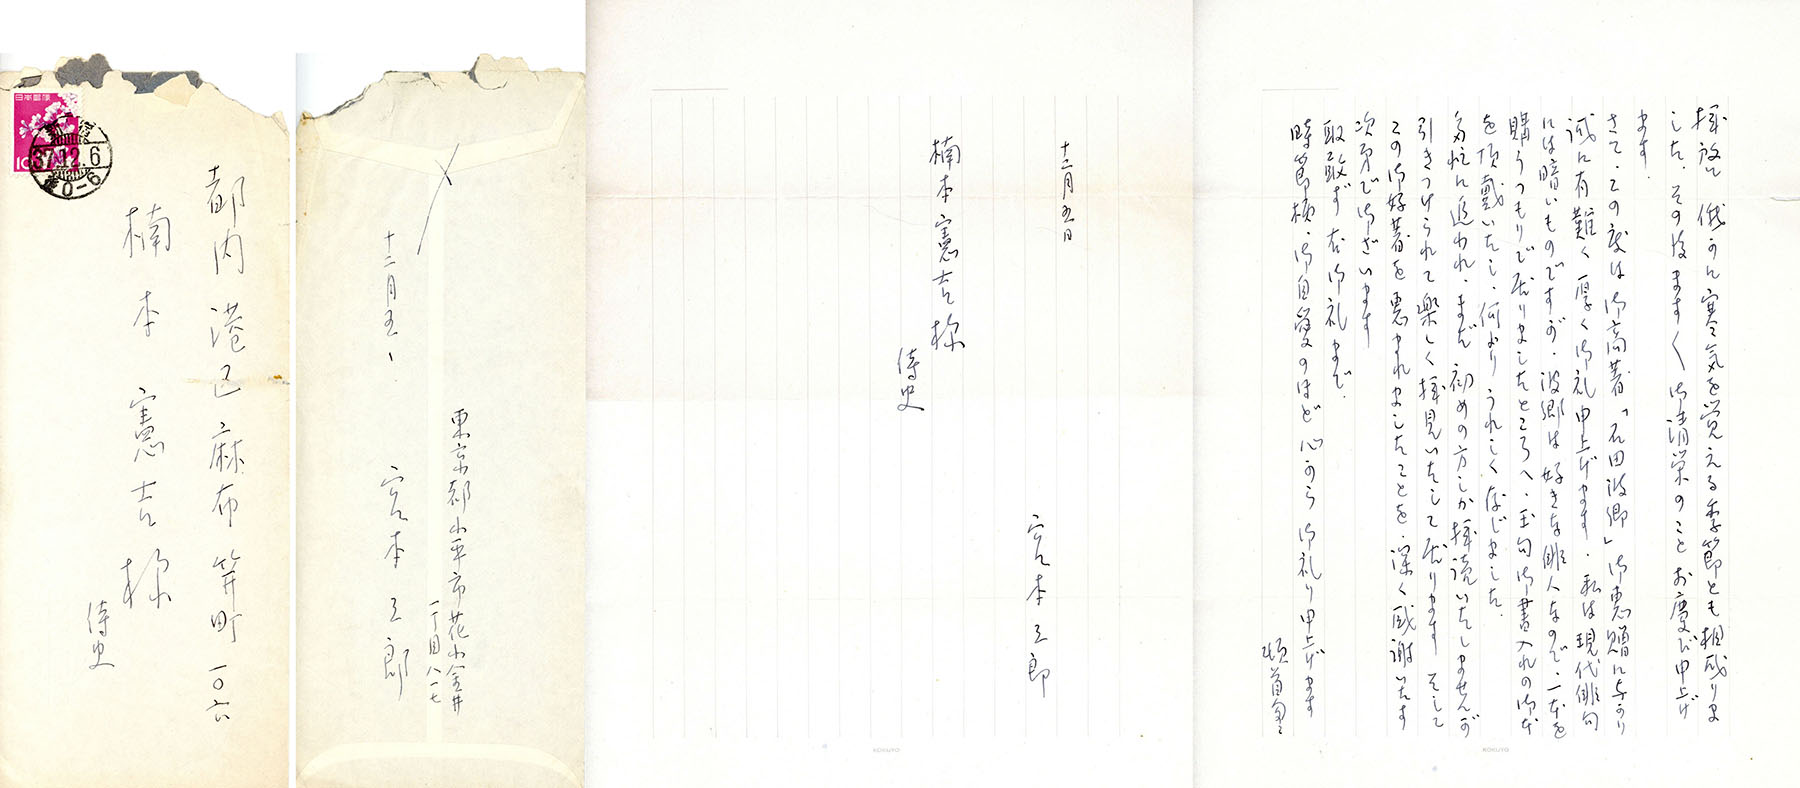 日本郵便
10
新宿
37.12.6
都内港区麻布笄町一〇六
楠本憲吉様
侍史
十二月五日
東京都小平市花小金井
一丁目八一七
宮本三郎
拝啓 俄かに寒気を覚える季節とも相成りま
した。その後ますく御清栄のことお慶び申上げ
ます。
さて、この度は御高著「石田波郷」御恵贈に与かり
誠に有難く厚く御礼申上げます。私は現代俳句
には暗いものですが、波郷は好きな俳人なので、一本を
購うつもりで居りましたところへ、玉句御書入れの御本
を頂戴いたし、何よりうれしく存じました。
多忙に追われ、まだ初めの方しか拝読いたしませんが
引きつけられて楽しく拝見いたして居ります そして
この御好著を恵まれましたことを、深く感謝いたす
次第でございます
取敢ず右御礼まで。
時節柄、御自愛のほど心から御礼り申上げます
頓首
十二月五日
宮本三郎
楠本憲吉様
侍史
KOKUYO
KOKUYO